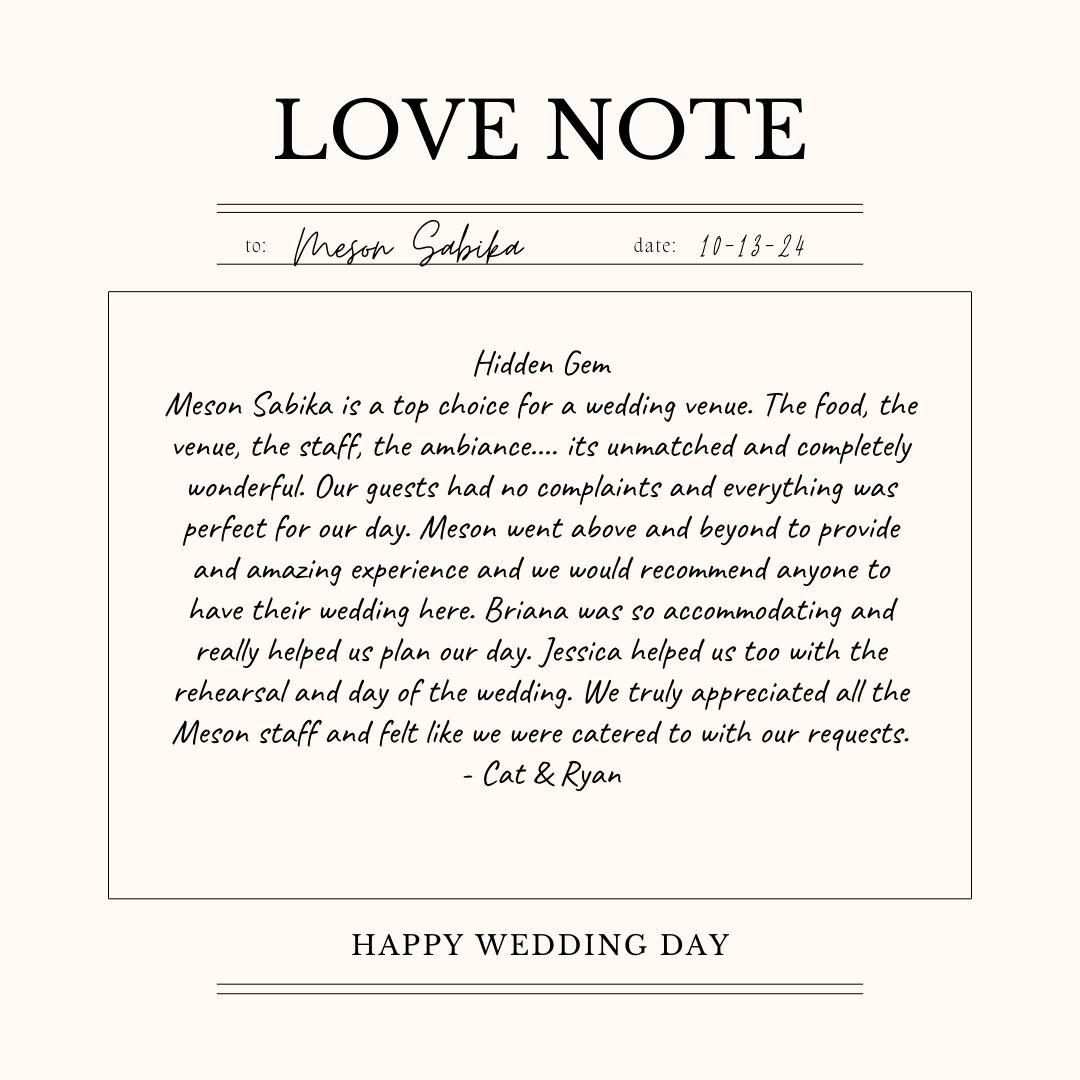 LOVE NOTE
to: Meson Sabika date: 10-13-24
Hidden Gem
Meson Sabika is a top choice for a wedding venue. The food, the
venue, the staff, the ambiance.... its unmatched and completely
wonderful. Our guests had no complaints and everything was
perfect for our day. Meson went above and beyond to provide
and amazing experience and we would recommend anyone to
have their wedding here. Briana was so accommodating and
really helped us plan our day. Jessica helped us too with the
rehearsal and day of the wedding. We truly appreciated all the
Meson staff and felt like we were catered to with our requests.
- Cat & Ryan
HAPPY WEDDING DAY